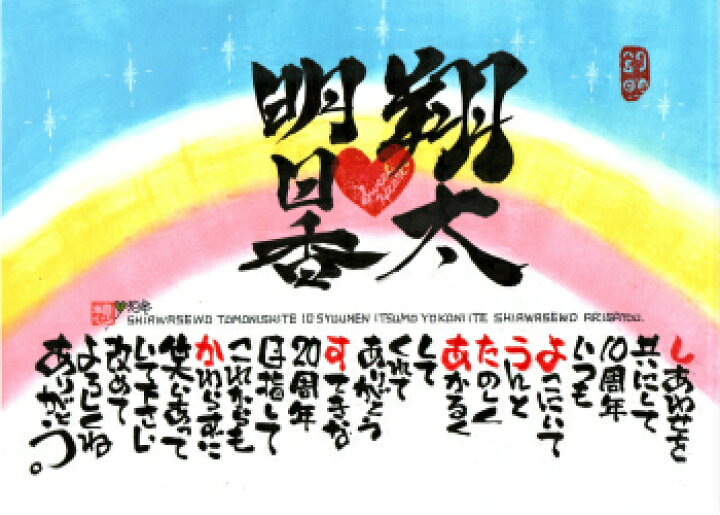 翔太
明日香
SHIAWASEWO TOMONISHITE 10 SYOUNEN ITSUMO YOKONI ITE SHIAWASEWO ARIGATOU.
しあわせを
共にして
10周年
いつも
よこにいて
うんと
たのしく
あかるく
して
くれて
ありがとう
すてきな
20周年
目指して
これからも
かわらずに
笑いあって
いて下さい
改めて
よろしくね
ありがとう。